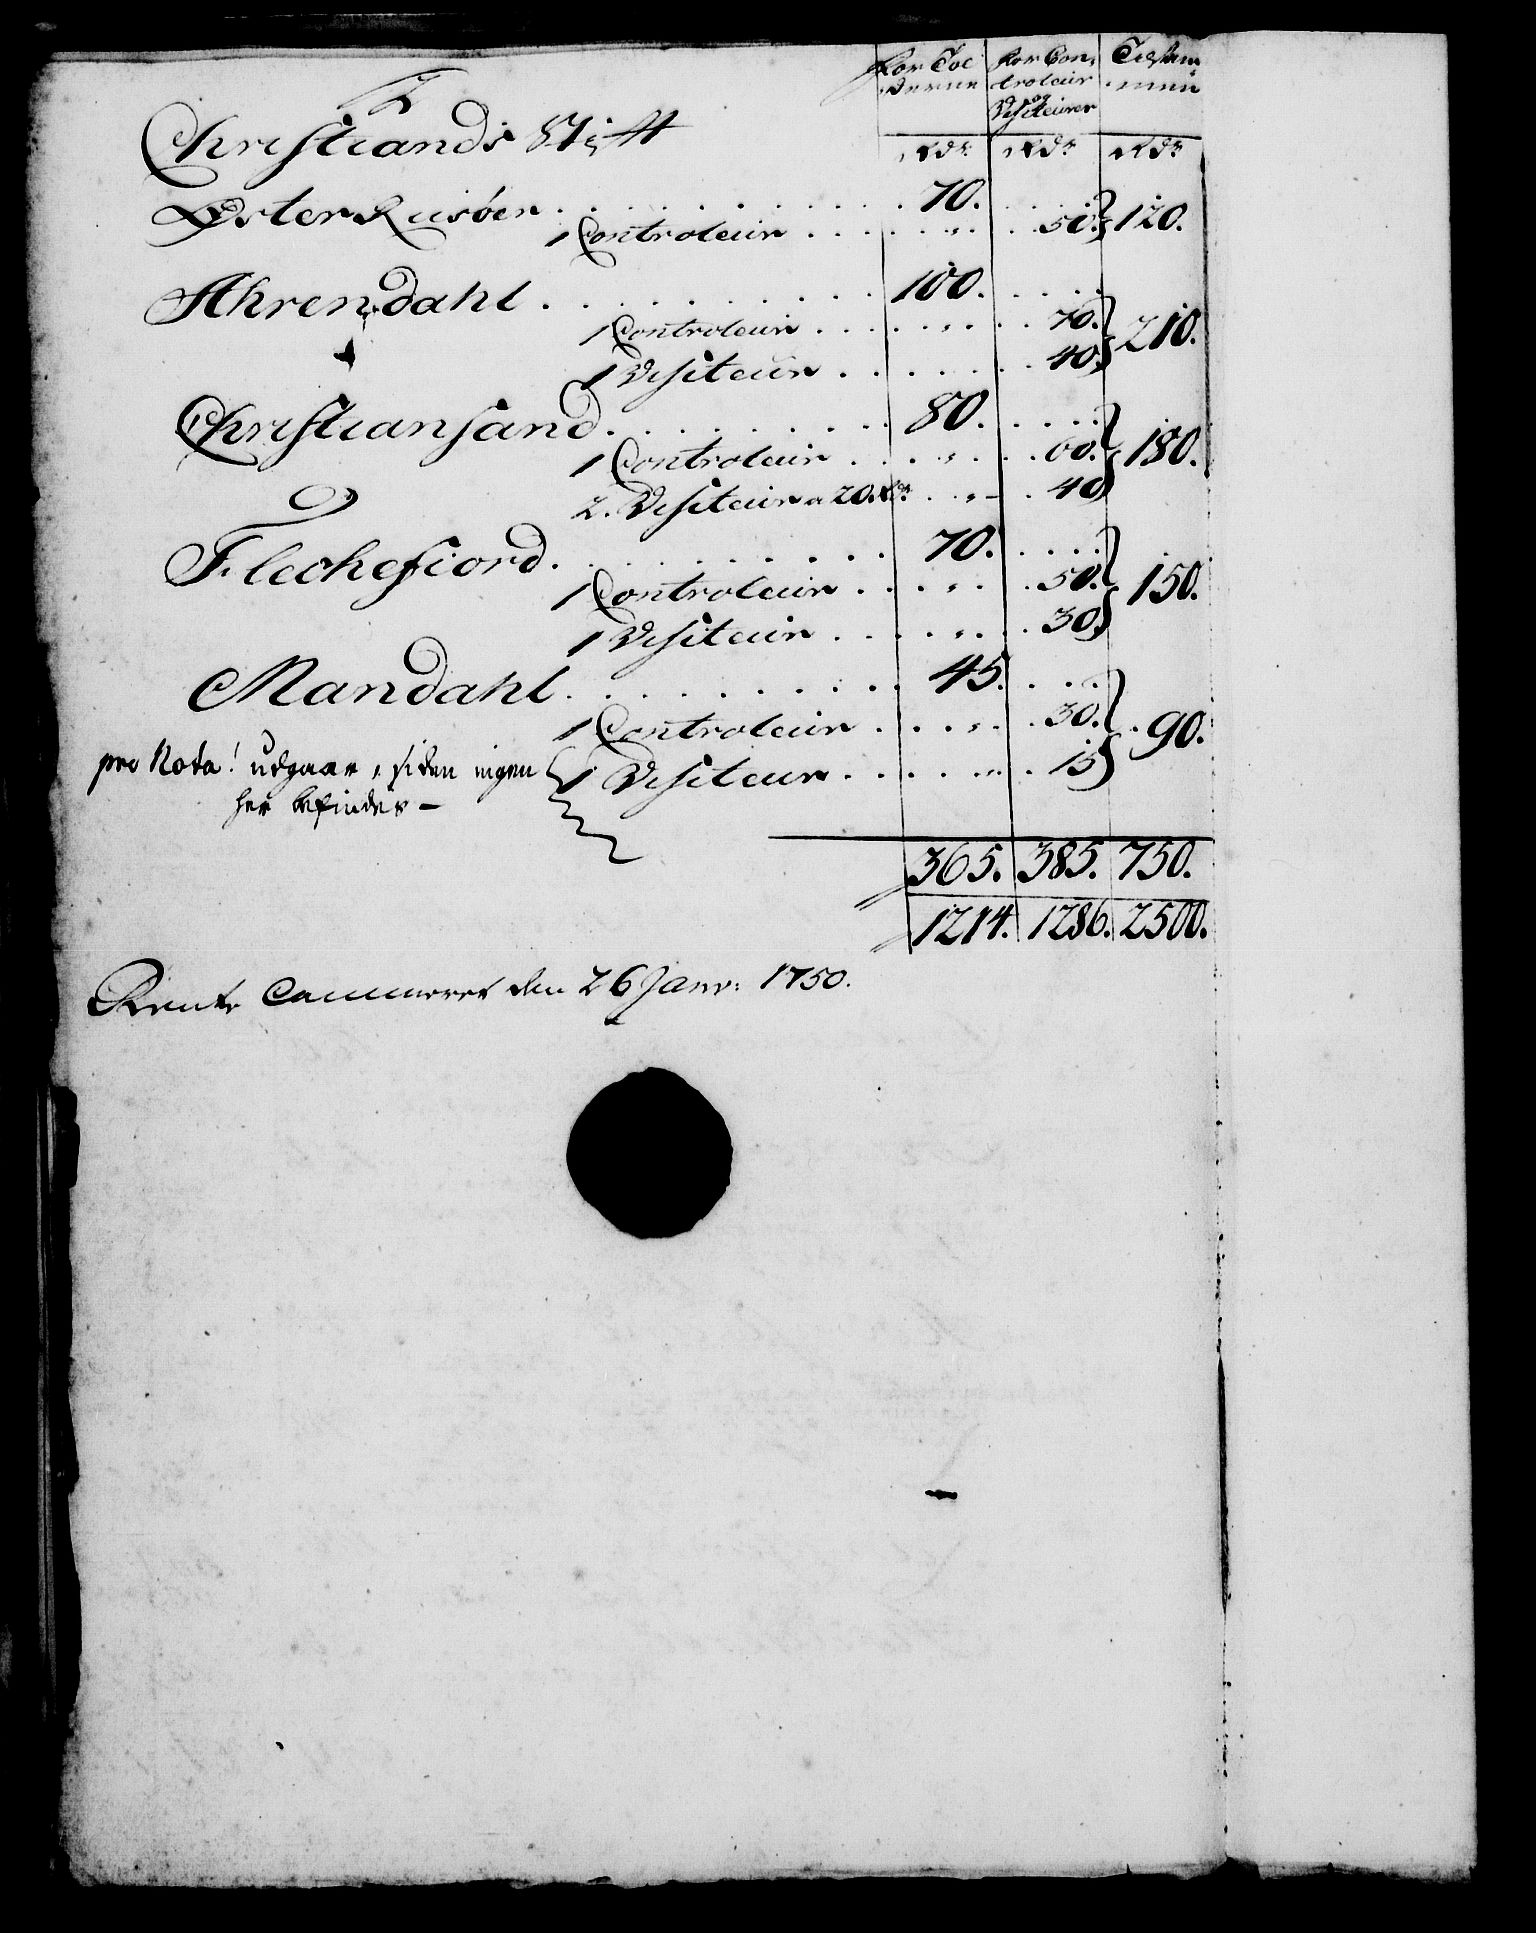 For Tol For Con, Tilsam¬
derne troleur men
og
Visiteurer
Christiands Stift
Rdr Rdr Rdr
Øster Riisöer . . . . . . . . . 70. . . . . } 120.
1 Controleur . . . . . „ . . 50. }
Ahrendahl . . . . . . . . . . 100. . . . . } 210.
1 Controleur . . . . . „ . . 70. }
1 Visiteur . . . . . . . 40 }
Christiansand . . . . . . . . . 80. . . . . } 180.
1 Controleur . . . „ . . 60. }
2. Visiteur a 20. Rdr. . „ – . 40 }
Flechefiord . . . . . . . . . . 70. . . . . } 150.
1 Controleur . . . . „ . . 50. }
1 Visiteur . . . . „ . . 30 }
Mandahl . . . . . . . . . . 45. . . . } 90.
1 Controleur . . . . „ . . 30. }
pro Nota! udgaar, siden ingen { 1 Visiteur . . . . . „ . 15 }
her befindes –
365. 385. 750.
1214. 1286. 2500.
Rente Cammeret den 26 Janv: 1750.